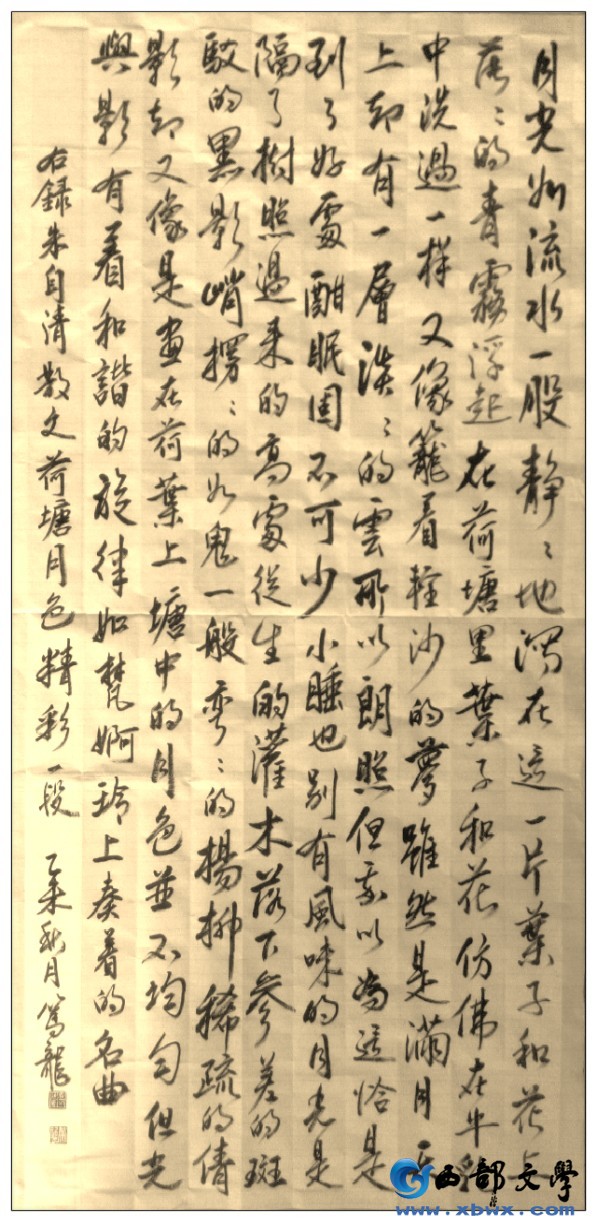 月光如流水一般静〻地瀉在這一片葉子和花上
薄〻的青霧浮起在荷塘里葉子和花仿佛在牛乳
中洗過一样又像籠着輕沙的夢雖然是滿月天
上却有一層淡〻的雲所以朗照但我以為這恰是
到了好處酣眠固不可少小睡也别有風味的月光是
隔了樹照過来的高處從生的灌木落下参差的斑
駁的黑影峭楞〻的如鬼一般弯〻的楊柳稀疏的倩
影却又像是畫在荷葉上塘中的月色並不均匀但光
與影有着和諧的旋律如梵婀玲上奏着的名曲
右録朱自清散文荷塘月色精彩一段 乙未秋月篤龍
西部文学
www.xbwx.com